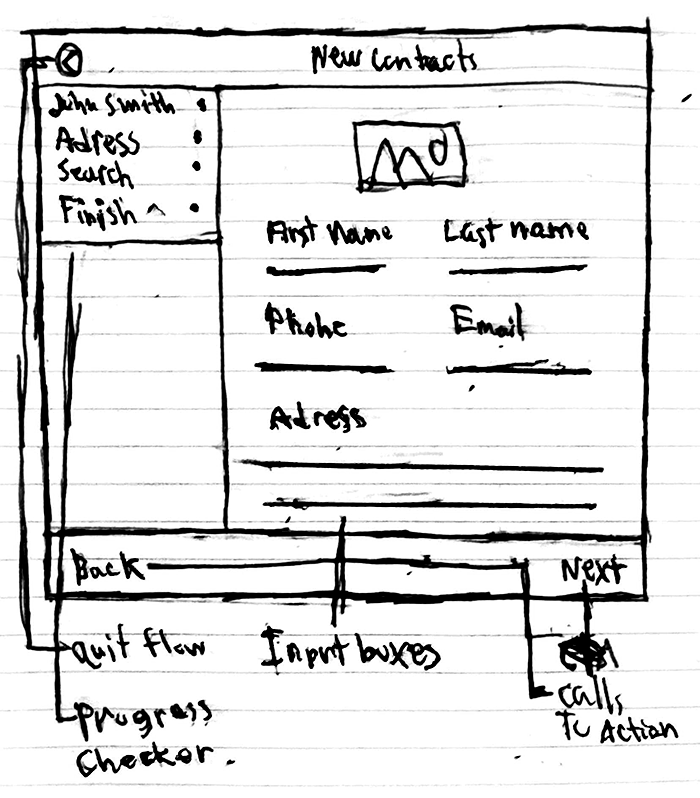 New Contacts
John Smith
Adress
Search
Finish
First Name
Last name
Phone
Email
Adress
Back
Next
quit flow
Input buxes
Calls
To Action
progress
checker.